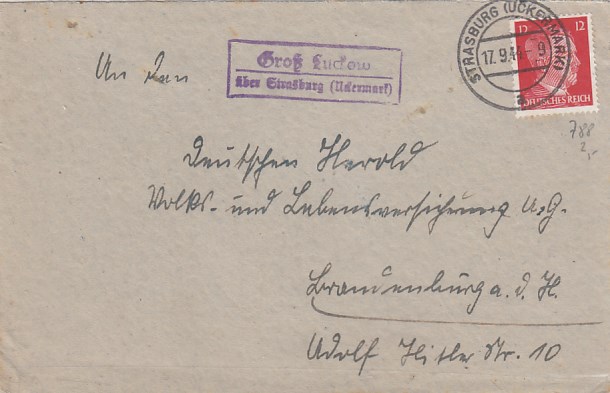 Groß Luckow
über Strasburg (Uckermark)
STRASBURG (UCKERMARK)
17.9.44-9
a
12 12
DEUTSCHES REICH
788
2,-
An den
Deutschen Herold
Volks- und Lebensversicherung A.G.
Brandenburg a. d. H.
Adolf Hitler Str. 10